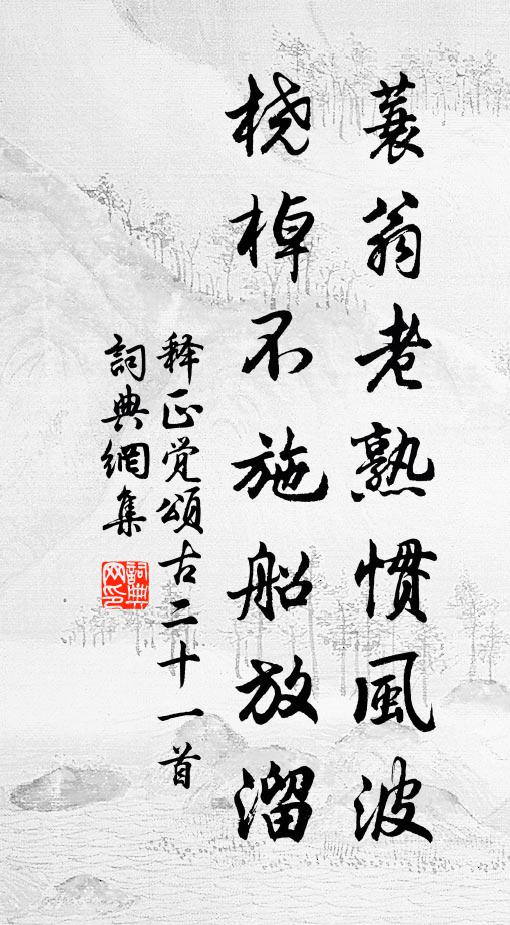 蓑翁老熟慣風波
桡棹不施船放溜
释正觉頌古二十一首
詞典網集
詞典网印